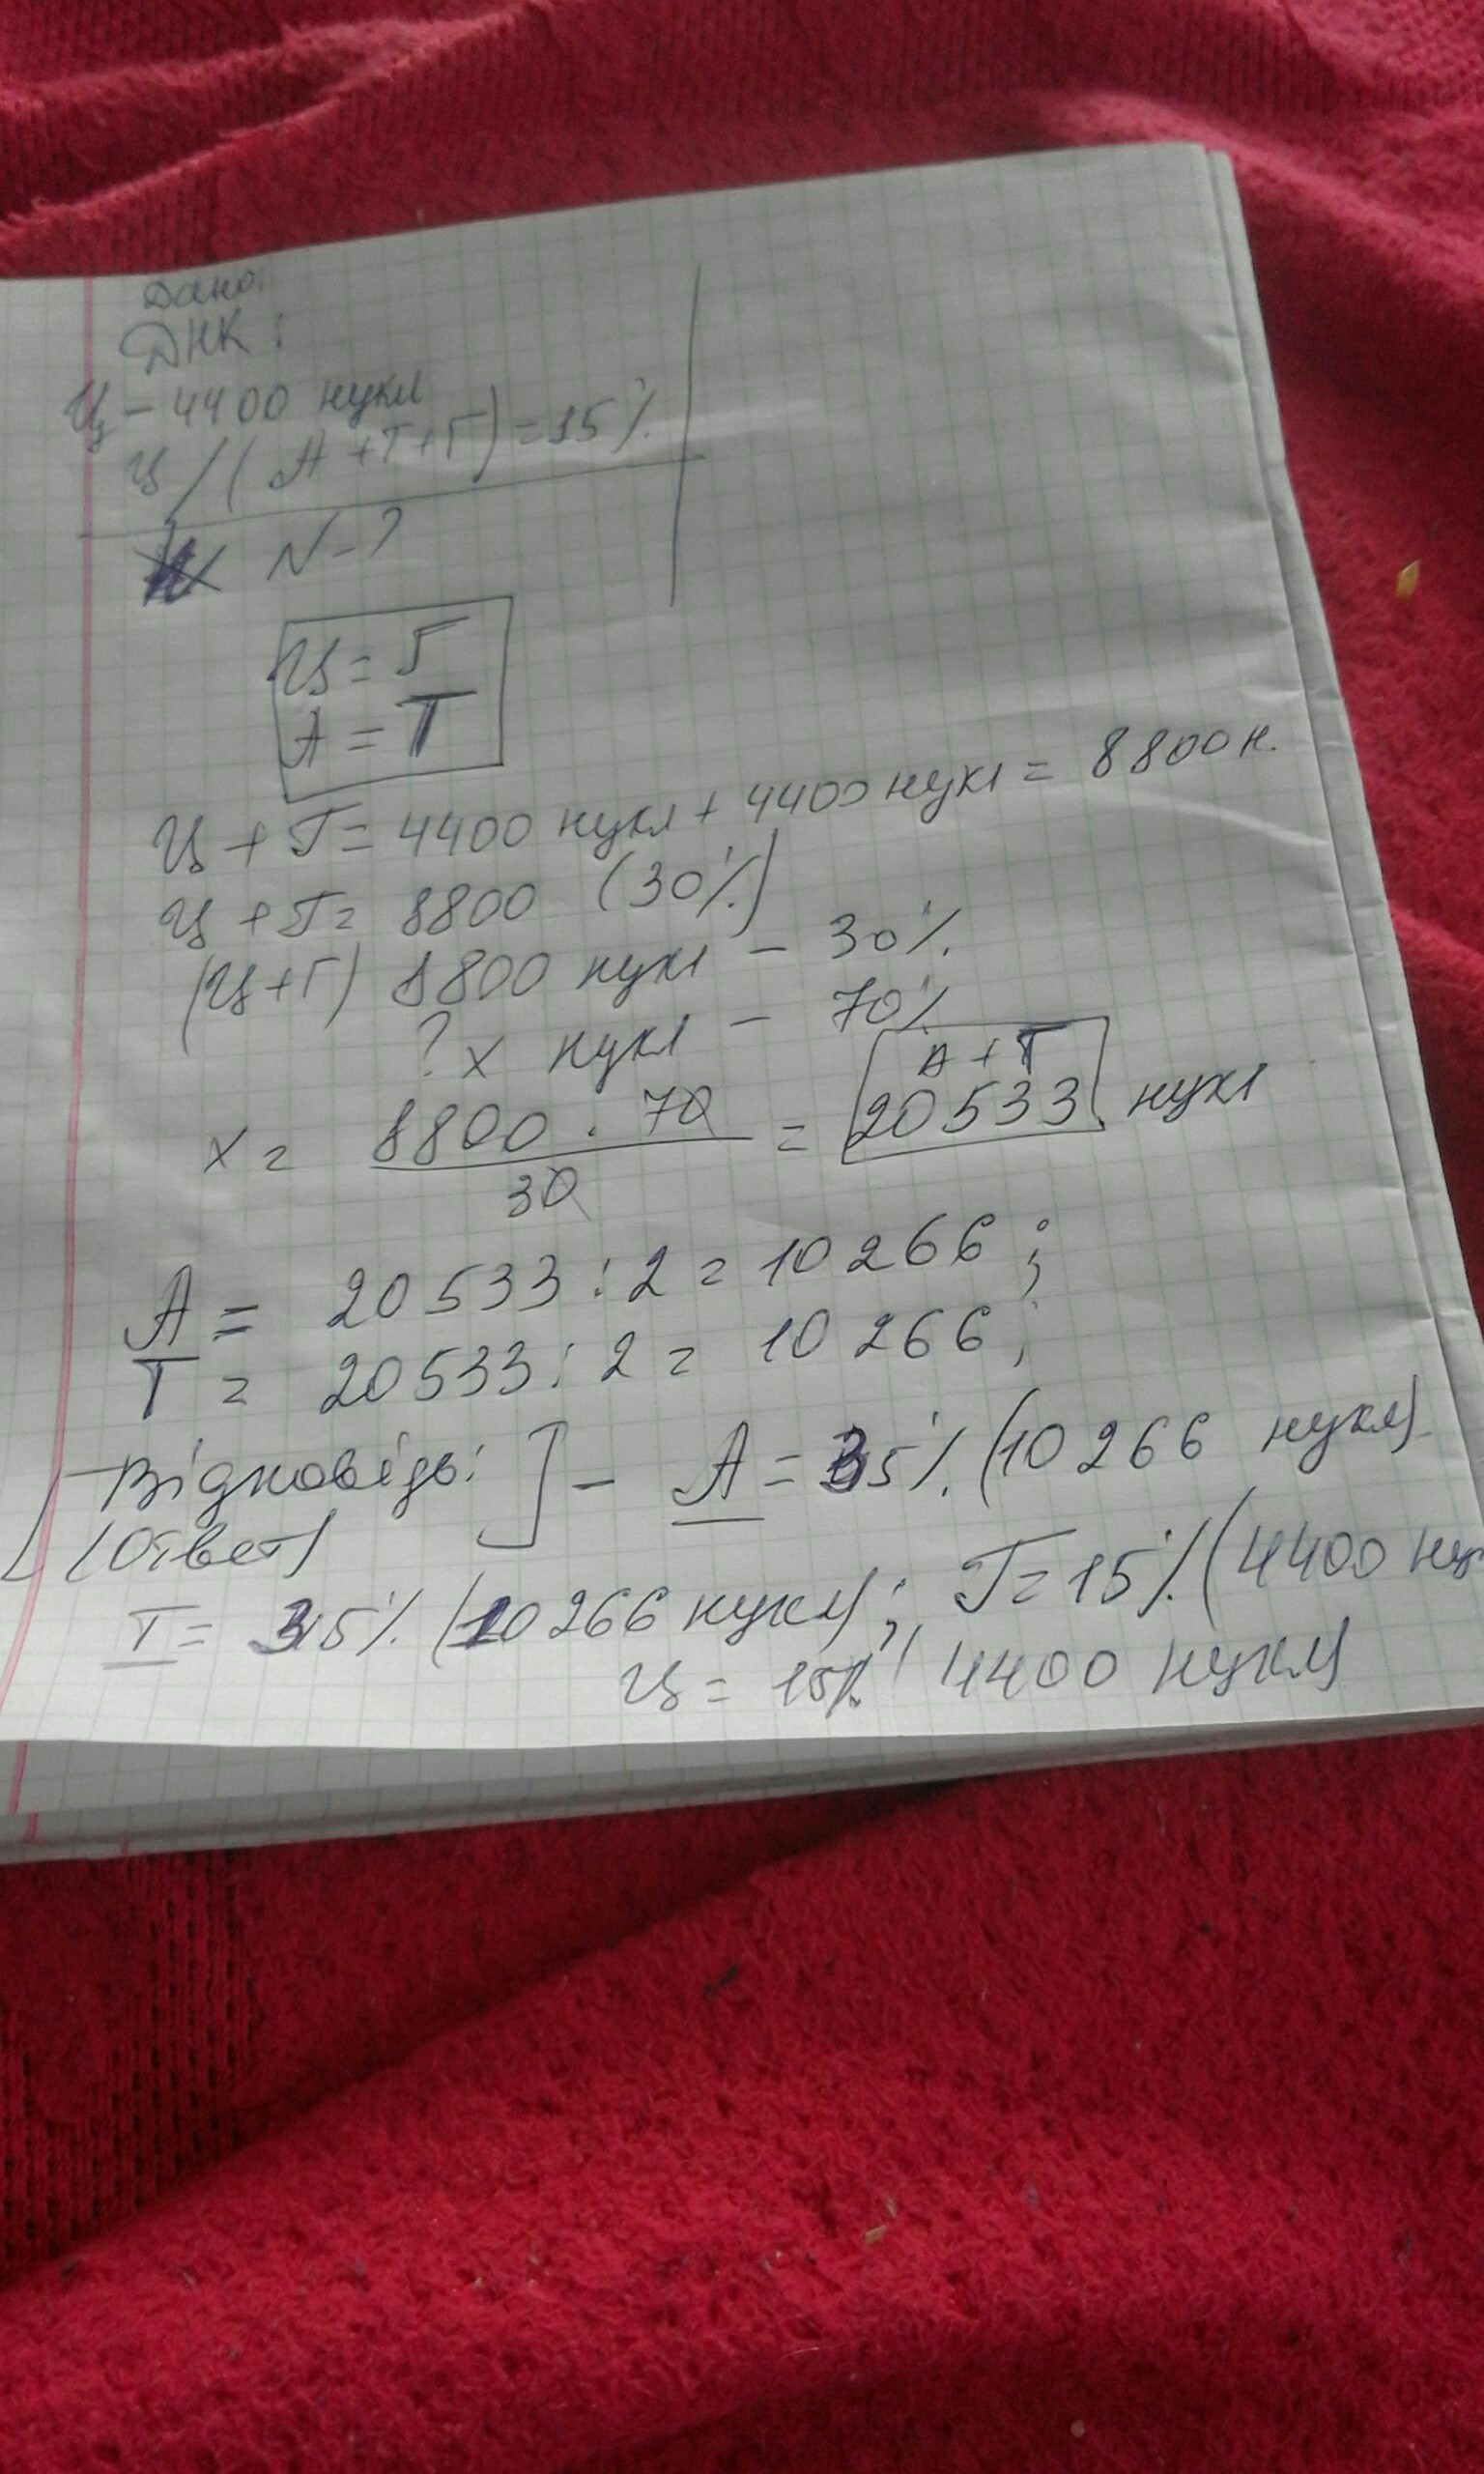 Дано:
ДНК:
Ц - 4400 нукл
Ц / (А + Т + Г) = 15%
N - ?
Ц = Г
А = Т
Ц + Г = 4400 нукл + 4400 нукл = 8800 н.
Ц + Г = 8800 (30%)
(Ц+Г) 8800 нукл - 30%
? х нукл - 70%
А + Т
х = 8800 · 70 / 30 = 20533 нукл
А = 20533 : 2 = 10266 ;
Т = 20533 : 2 = 10266 ;
[Відповідь: ] - А = 35% (10266 нукл)
(Ответ)
Т = 35% (10266 нукл) ; Г = 15% (4400 ну
Ц = 15% (4400 нукл)